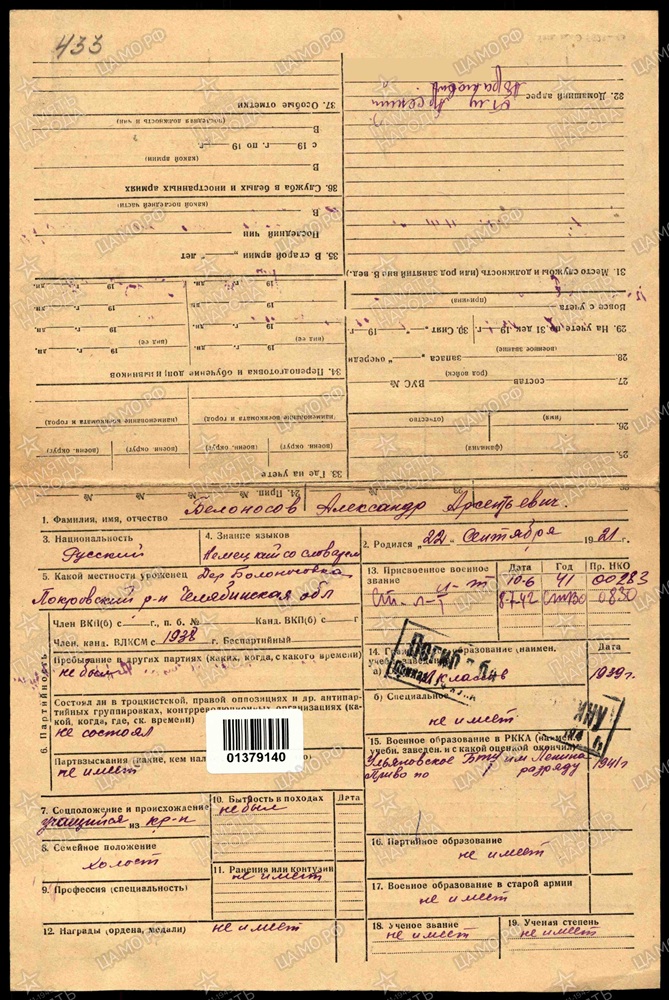 433
32. Домашний адрес
37. Особые отметки
(последняя должность и чин)
В
с 19 г. по 19 г.
(какой армии)
В
36. Служба в белых и иностранных армиях
(какой последней части)
В
Последний чин
35. В старой армии „ “ лет
31. Место службы и должность (или род занятий вне В. вед.)
(причина)
Вовсе с учета
29. На учете по 31 дек. 19 г. 30. Снят 19 г.
(военное звание)
28. запаса „ “ очереди
(род войск)
27. состав ВУС №
(имя) (отчество)
26.
(фамилия)
25.
34. Переподготовка и обучение
19 г. дн. 19 г. дн.
(вид ее) (вид ее)
19 г. дн. 19 г. дн.
19 г. дн. 19 г. дн.
(наименование военкомата и город) (наименование военкомата и город)
(военн. округ) (военн. округ) (военн. округ) (военн. округ)
33. Где на учете
№ № 24. Прип. № №
1. Фамилия, имя, отчество Белоносов Александр Арсентьевич.
3. Национальность
Русский
4. Знание языков
Немецкий со словарем
2. Родился „22“ Сентября 1921 г.
5. Какой местности уроженец Дер Белоносовка
Покровский р-н Челябинская обл
13. Присвоенное военное звание
Дата Год Пр. НКО
л-т 10-6 41 00283
Ст. л-т 8-7-42 0830
Член ВКП(б) с г., п. б. № Канд. ВКП(б) с г.
Член. канд. ВЛКСМ с 1938 г. Беспартийный
6. Партийность
Пребывание в других партиях (каких, когда, с какого времени)
не был
Состоял ли в троцкистской, правой оппозициях и др. антипартийных группировках, контрреволюционных организациях (какой, когда, где, ск. времени)
не состоял
Партвзыскания (какие, кем нал
не имеет
01379140
14. Гражданское образование (наимен. учебн. заведения) Дата
а) классов 1939г.
б) Специальное
не имеет
Погиб
15. Военное образование в РККА (наимен. учебн. заведен. и с какой оценкой окончил)
Ульяновское БТУ им Ленина 1941г
ПриВо по I разряду
7. Соцположение и происхождение
учащийся из кр-н
8. Семейное положение
холост
9. Профессия (специальность)
10. Бытность в походах Дата
не был
11. Ранения или контузии
не имеет
12. Награды (ордена, медали) не имеет
16. Партийное образование
не имеет
17. Военное образование в старой армии
не имеет
18. Ученое звание
не имеет
19. Ученая степень
не имеет